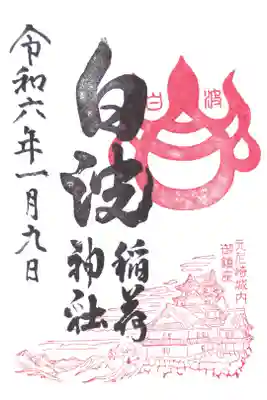 白波
元尼崎城内
御鎮座
白波
稲荷
神社
令和六年一月九日